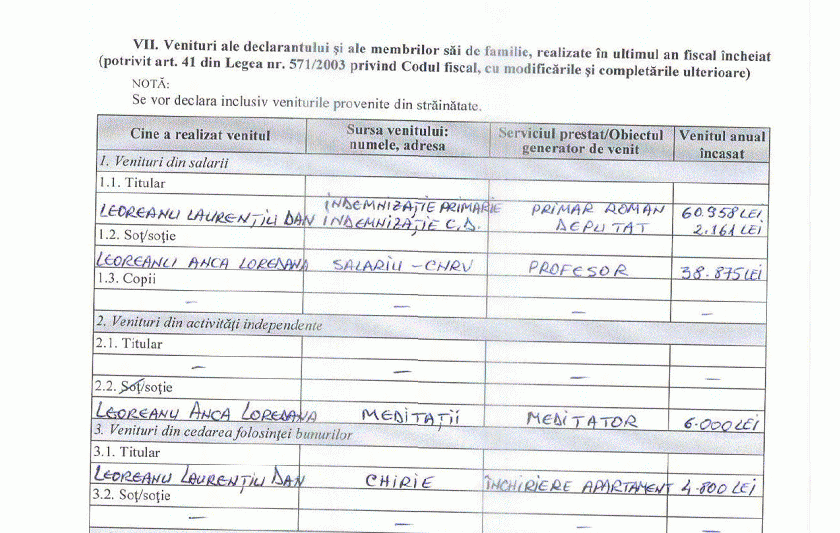 VII. Venituri ale declarantului și ale membrilor săi de familie, realizate în ultimul an fiscal încheiat
(potrivit art. 41 din Legea nr. 571/2003 privind Codul fiscal, cu modificările și completările ulterioare)
NOTĂ:
Se vor declara inclusiv veniturile provenite din străinătate.
Cine a realizat venitul Sursa venitului: numele, adresa Serviciul prestat/Obiectul generator de venit Venitul anual încasat
1. Venituri din salarii
1.1. Titular
LEOREANU LAURENȚIU DAN ÎNDEMNIZAȚIE PRIMĂRIE PRIMAR ROMAN 60.958 LEI
INDEMNIZAȚIE C.D. DEPUTAT 2.161 LEI
1.2. Soț/soție
LEOREANU ANCA LOREDANA SALARIU - CNRV PROFESOR 38.875 LEI
1.3. Copii
— — — —
2. Venituri din activități independente
2.1. Titular
— — — —
2.2. Soț/soție
LEOREANU ANCA LOREDANA MEDITAȚII MEDITATOR 6.000 LEI
3. Venituri din cedarea folosinței bunurilor
3.1. Titular
LEOREANU LAURENȚIU DAN CHIRIE ÎNCHIRIERE APARTAMENT 4.800 LEI
3.2. Soț/soție
— — — —